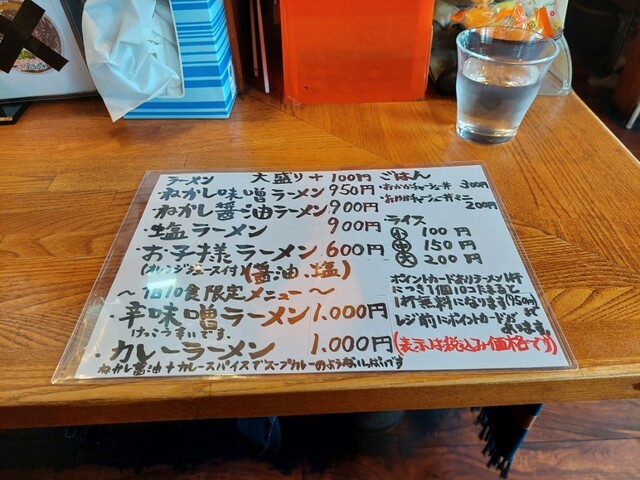 ラーメン 大盛り+100円 ごはん
・ねかし味噌ラーメン 950円
・ねかし醤油ラーメン 900円
・塩ラーメン 900円
・お子様ラーメン 600円
(オレンジジュース付)(醤油、塩)
〜1日10食限定メニュー〜
・辛味噌ラーメン 1.000円
けっこう辛いです。
・カレーラーメン 1.000円
ねかし醤油+カレースパイスでスープカレーのような
・おかかチャーシュー丼 300円
・おかかチャーシュー丼ミニ 200円
ライス
小 100円
中 150円
大 200円
ポイントカードありラーメン1杯
につき1個10コたまると
1杯無料になります(950円)まで
レジ前にポイントカードが
あります。
(表示は税込み価格です)